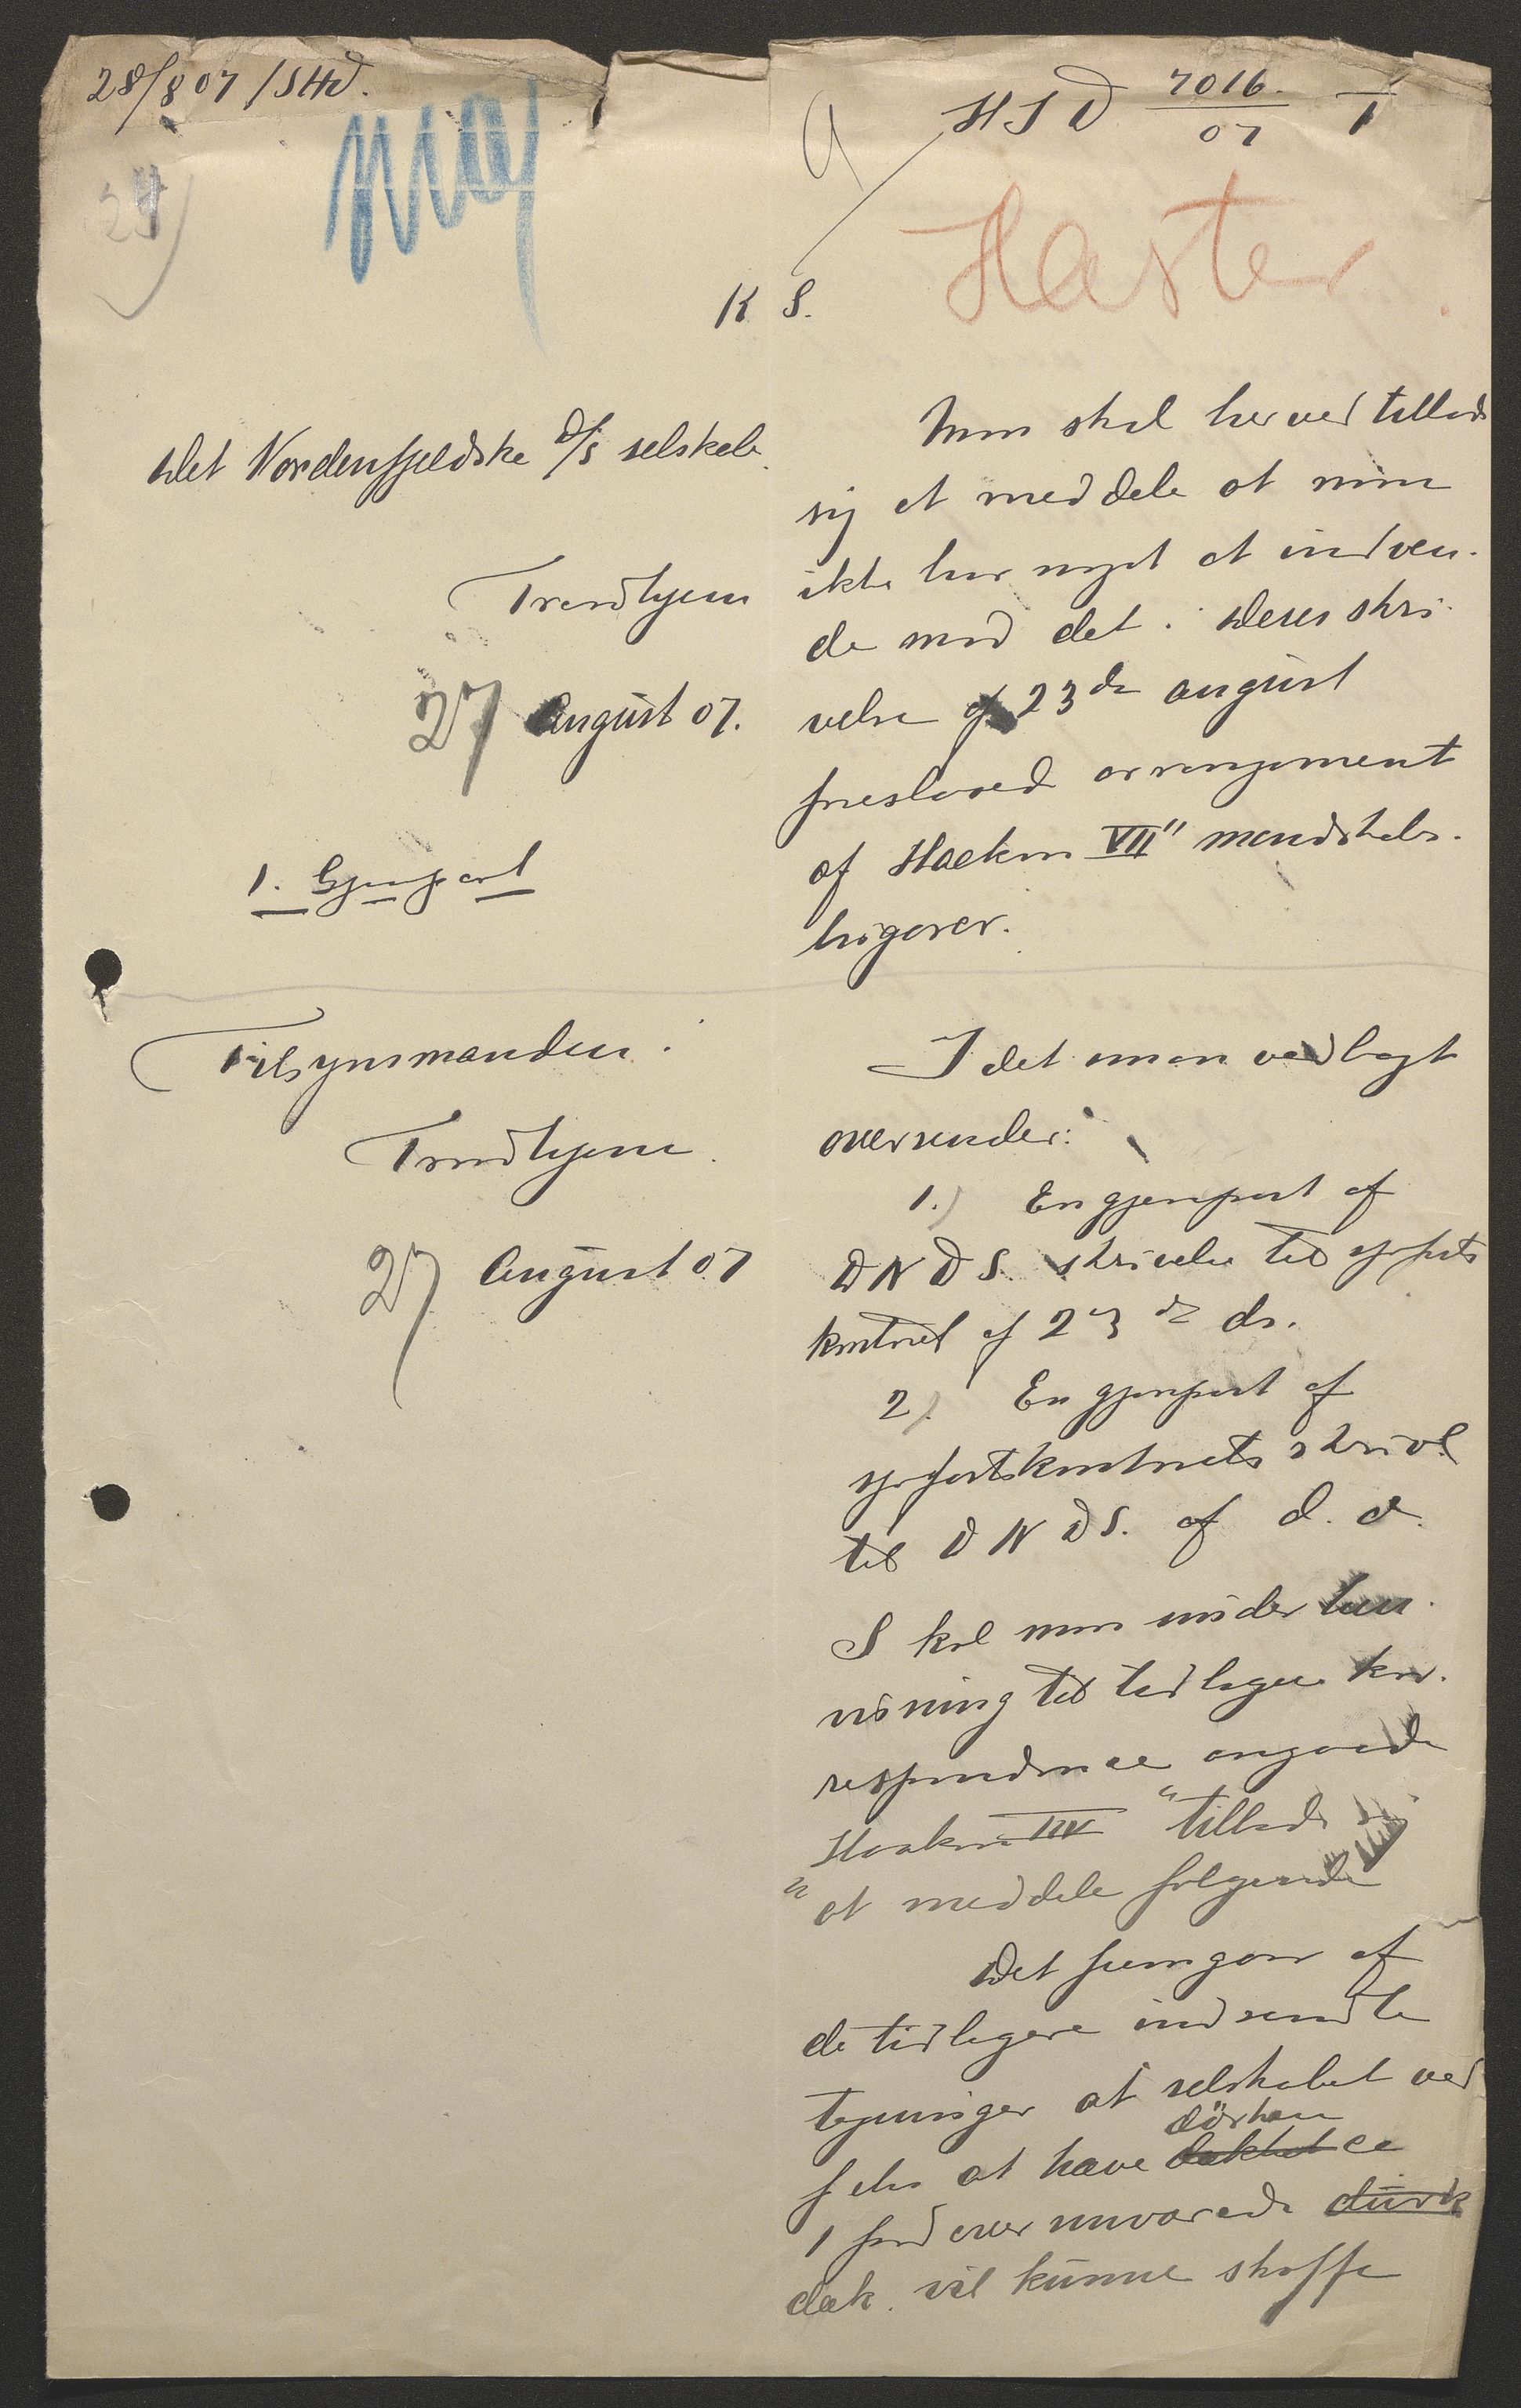 28/8 07 / SHd.
HSD 7016./07 1
24
Haster
K S.
Det Nordenfjeldske D/S selskab
Trondhjem
27 August 07.
1. Gjenpart
Man skal herved tillade
sig at meddele at man
ikke har noget at indven-
de mod det i Deres skri-
velse af 23de august
foreslaaed arrangement
af Haakon VII" mandskabs-
lugarer.
Tilsynsmanden.
Trondhjem.
27 August 07
I det man vedlagt
oversender:
1.) En gjenpart af
DNDS. skrivelse til sjøfarts
kontoret af 23de ds.
2). En gjenpart af
sjøfartskontorets skrivel
til DNDS. af d. d.
Skal man under hen-
visning til tidligere kor-
respondance angaaende
"Haakon VII" tillade sig
at meddele følgende
Det fremgaar af
de tidligere indsendte
tegninger at selskabet ved
dørken
at have ca
1 fod over nuværende durk
dæk. vil kunne skaffe